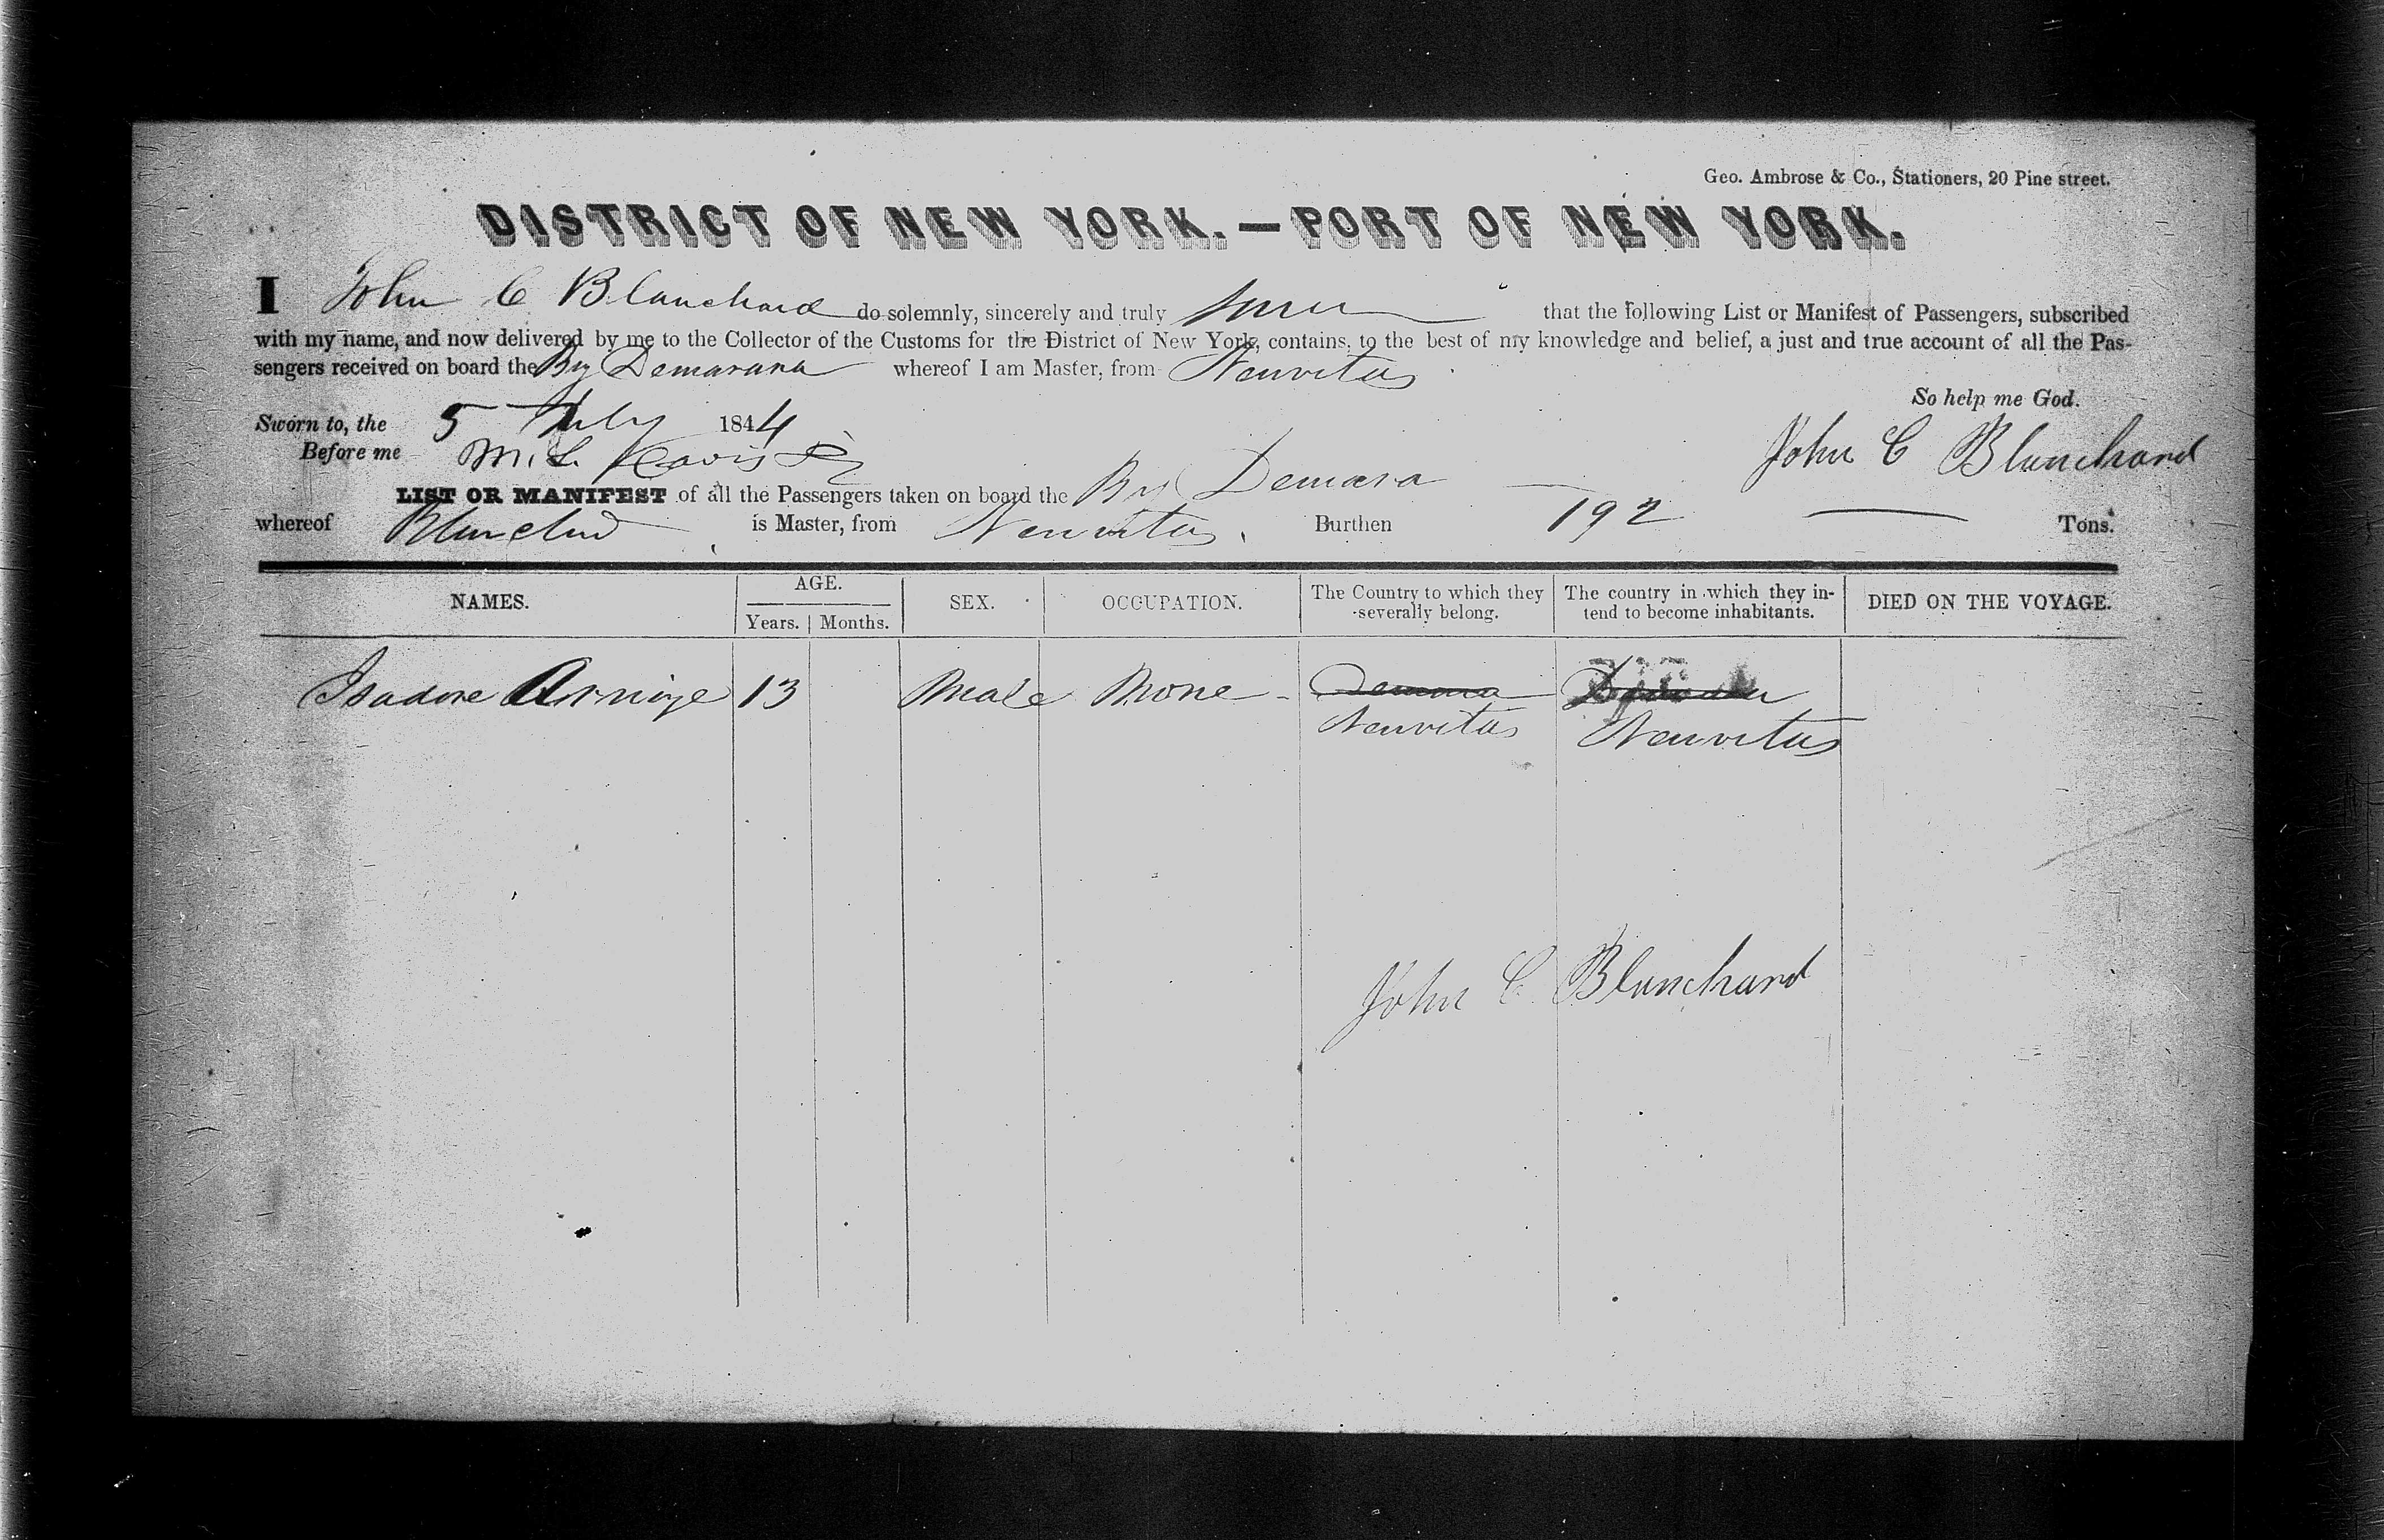 Geo. Ambrose & Co., Stationers, 20 Pine street.
DISTRICT OF NEW YORK.—PORT OF NEW YORK.
I John C Blanchard do solemnly, sincerely and truly swear that the following List or Manifest of Passengers, subscribed
with my name, and now delivered by me to the Collector of the Customs for the District of New York, contains, to the best of my knowledge and belief, a just and true account of all the Pas-
sengers received on board the Brig Demarara whereof I am Master, from Neuvitas
So help me God.
Sworn to, the 5 July 1844
John C Blanchard
Before me
LIST OR MANIFEST of all the Passengers taken on board the Brig Demara
whereof Blanchd is Master, from Neuvitas. Burthen 192 Tons.
NAMES. AGE. SEX. OCCUPATION. The Country to which they severally belong. The country in which they in-tend to become inhabitants. DIED ON THE VOYAGE.
Years. Months.
Isadore 13 Male None
Neuvitas Neuvitas
John C Blanchard